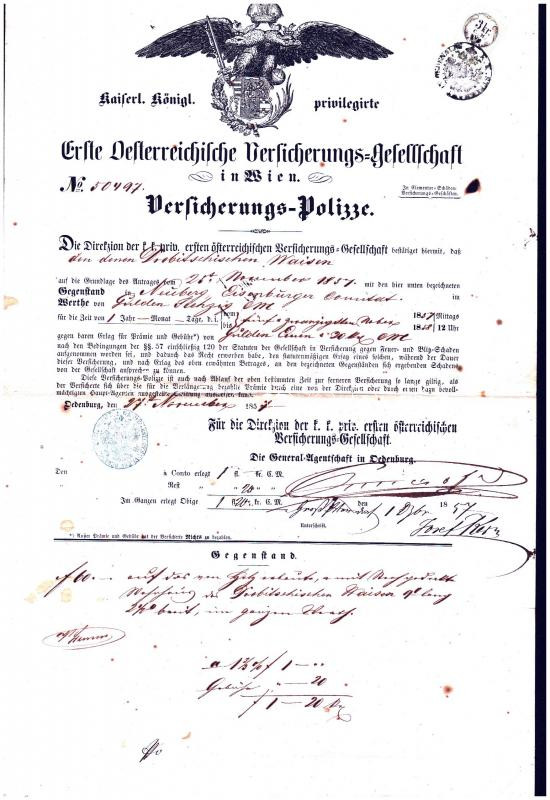 3 kr
Kaiserl. Königl. privilegirte
Erste Oesterreichische Versicherungs-Gesellschaft
in Wien.
No. 50497.
In Elementar-Schäden
Versicherungs-Geschäften.
Versicherungs-Polizze.
Die Direkzion der k. k. priv. ersten österreichischen Versicherungs-Gesellschaft bestätiget hiermit, daß
den denen Drobitschischen Waisen
auf die Grundlage des Antrages vom 25t November 1857 mit den hier unten bezeichneten
Gegenstand in Neuberg Eisenburger Comitat. im
Werthe von Gulden Sechzig CM
für die Zeit von 1 Jahr — Monat — Tage, d. i. vom 1857 Mittags
bis fünf & zwanzigsten 1858 12 Uhr
gegen baren Erlag für Prämie und Gebühr*) von Gulden Einen & 20 kr CM
nach den Bedingungen der §§. 57 einschließig 120 der Statuten der Gesellschaft in Versicherung gegen Feuer- und Blitz-Schaden
aufgenommen worden sei, und dadurch das Recht erworben habe, den statutenmäßigen Ersatz eines solchen, während der Dauer
dieser Versicherung, und nach Erlag des oben erwähnten Betrages, an den bezeichneten Gegenständen sich ergebenden Schadens
von der Gesellschaft ansprechen zu können.
Diese Versicherungs-Polizze ist auch nach Ablauf der oben bestimmten Zeit zur ferneren Versicherung so lange giltig, als
der Versicherte sich über die für die Verlängerung bezahlte Prämie durch eine von der Direkzion oder durch einen dazu bevoll-
mächtigten Haupt-Agenten ausgestellte Quittung ausweisen kann.
Oedenburg, den 27t November 1857
Für die Direkzion der k. k. priv. ersten österreichischen
Versicherungs-Gesellschaft.
Die General-Agentschaft in Oedenburg.
Den à Conto erlegt 1 fl. — kr. C. M.
Rest " 20 " "
Im Ganzen erlegt Obige 1 fl. 20 kr. C. M. den 1857
Unterschrift. Josef
*) Außer Prämie und Gebühr hat der Versicherte Nichts zu bezahlen.
Gegenstand.
f 60.— auf das von Holz erbaute, mit Stroh gedeckte
Wohnhaus der Drobitschischen Waisen 9° lang
2½° breit, im ganzen Werth.
a 1⅔% f 1 — "
Gebühr " — 20
f 1 — 20 kr